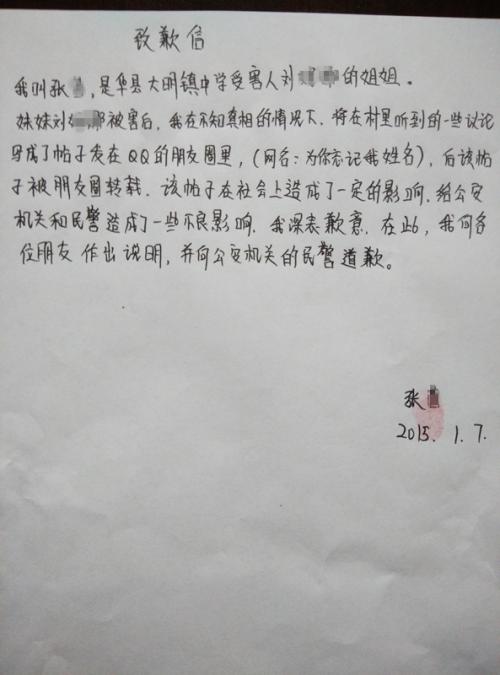 致歉信
我叫张,是华县大明镇中学受害人刘的姐姐。
妹妹刘那被害后,我在不知真相的情况下,将在村里听到的一些议论
写成了帖子发在QQ的朋友圈里,(网名:为你忘记我姓名),后该帖
子被朋友圈转载.该帖子在社会上造成了一定的影响.给公安
机关和民警造成了一些不良影响.我深表歉意.在此,我向各
位朋友作出说明,并向公安机关的民警道歉。
张
2015.1.7.